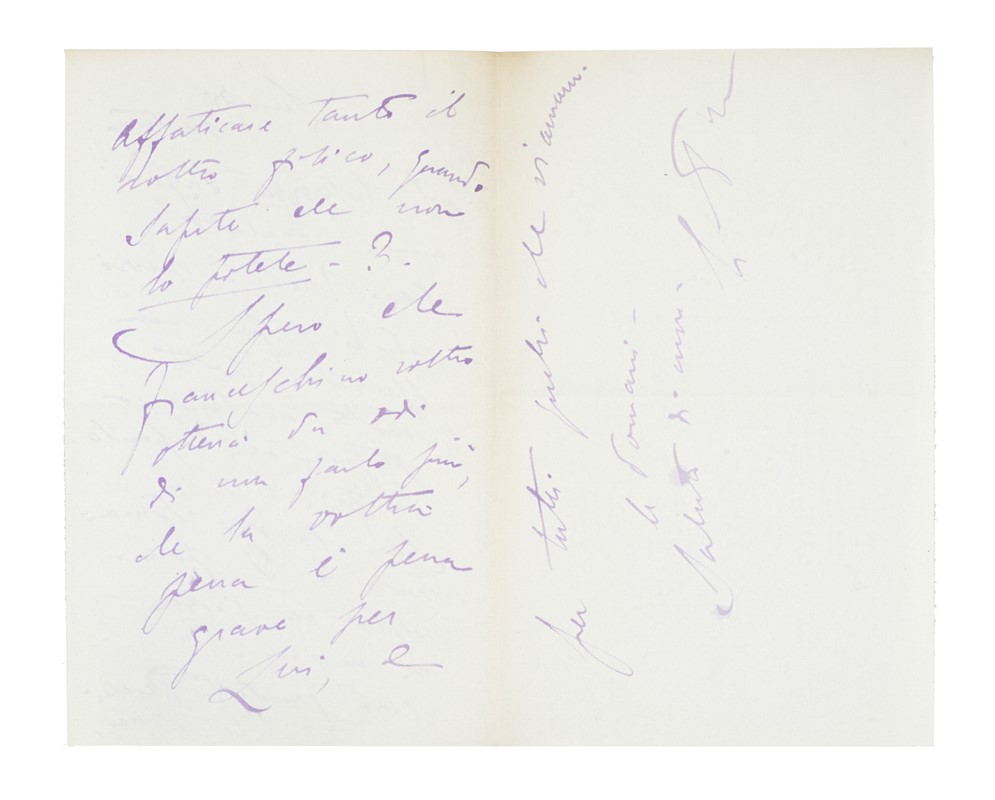 affaticare tanto il
vostro fisico, quando
sapete che non
lo potete - ?.
Spero che
Franceschino vostro
otterrà da
di non farlo più,
che la vostra
pena è pena
grave per
Lui, e
per tutti quelli che vi amano.
A domani -
Saluti